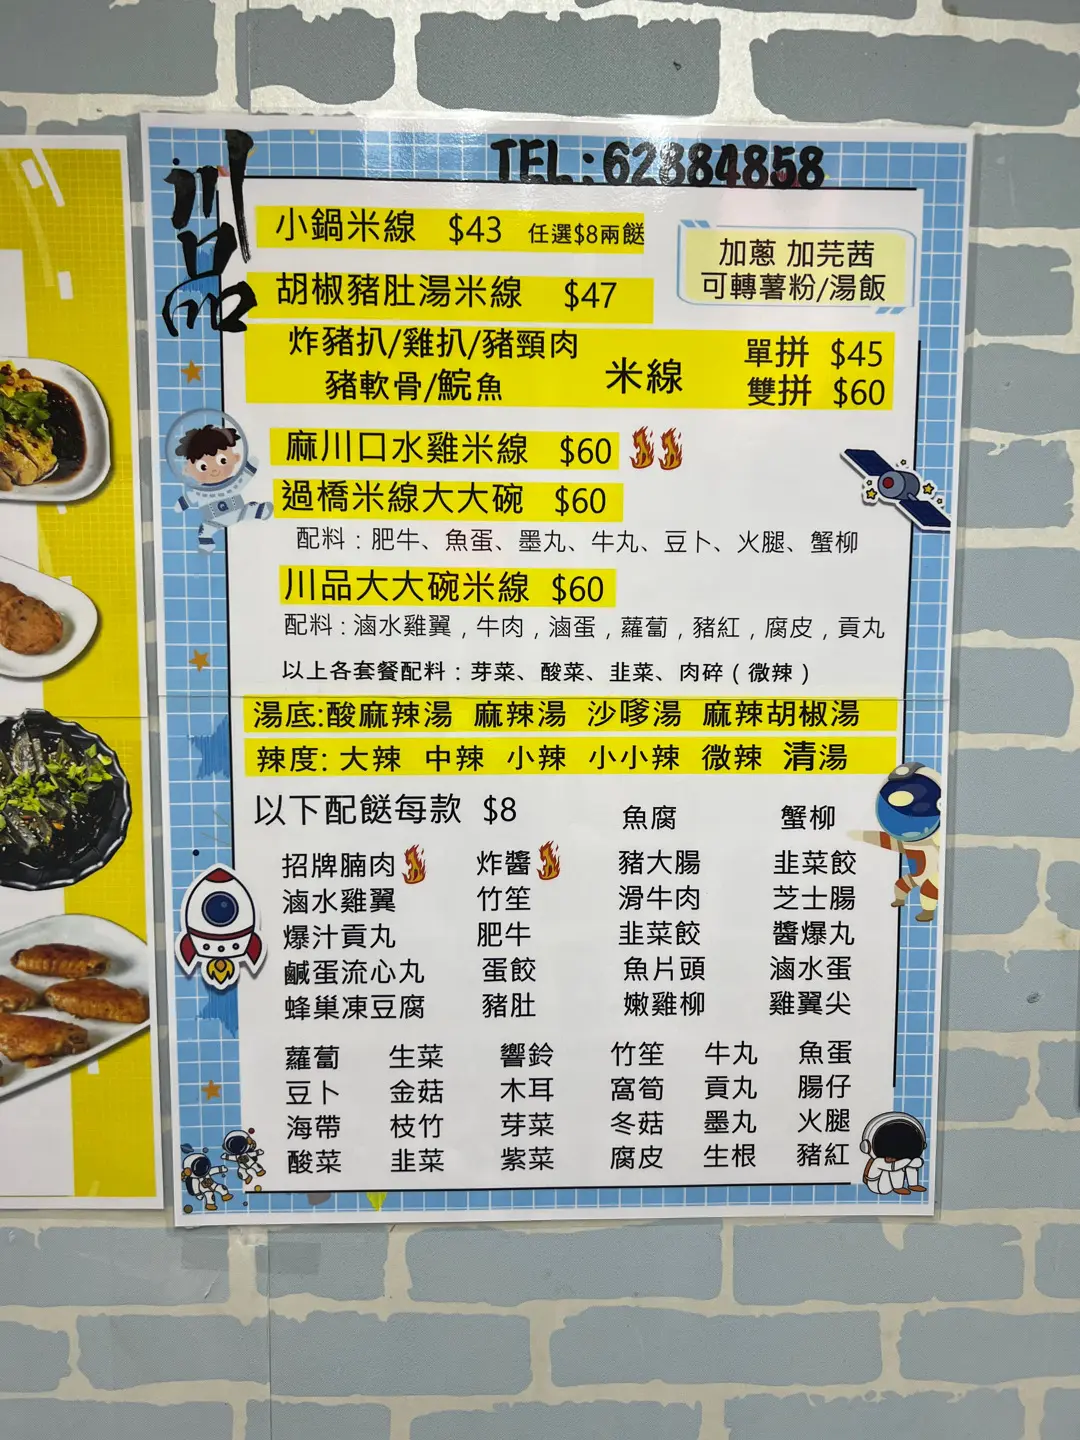 川品
TEL：62884858
小鍋米線 $43 任選$8兩餸
加蔥 加芫茜
可轉薯粉/湯飯
胡椒豬肚湯米線 $47
炸豬扒/雞扒/豬頸肉
豬軟骨/鯇魚
米線
單拼 $45
雙拼 $60
麻川口水雞米線 $60
過橋米線大大碗 $60
配料：肥牛、魚蛋、墨丸、牛丸、豆卜、火腿、蟹柳
川品大大碗米線 $60
配料：滷水雞翼，牛肉，滷蛋，蘿蔔，豬紅，腐皮，貢丸
以上各套餐配料：芽菜、酸菜、韭菜、肉碎（微辣）
湯底:酸麻辣湯 麻辣湯 沙嗲湯 麻辣胡椒湯
辣度: 大辣 中辣 小辣 小小辣 微辣 清湯
以下配餸每款 $8 魚腐 蟹柳
招牌腩肉 炸醬 豬大腸 韭菜餃
滷水雞翼 竹笙 滑牛肉 芝士腸
爆汁貢丸 肥牛 韭菜餃 醬爆丸
鹹蛋流心丸 蛋餃 魚片頭 滷水蛋
蜂巢凍豆腐 豬肚 嫩雞柳 雞翼尖
蘿蔔 生菜 響鈴 竹笙 牛丸 魚蛋
豆卜 金菇 木耳 窩筍 貢丸 腸仔
海帶 枝竹 芽菜 冬菇 墨丸 火腿
酸菜 韭菜 紫菜 腐皮 生根 豬紅